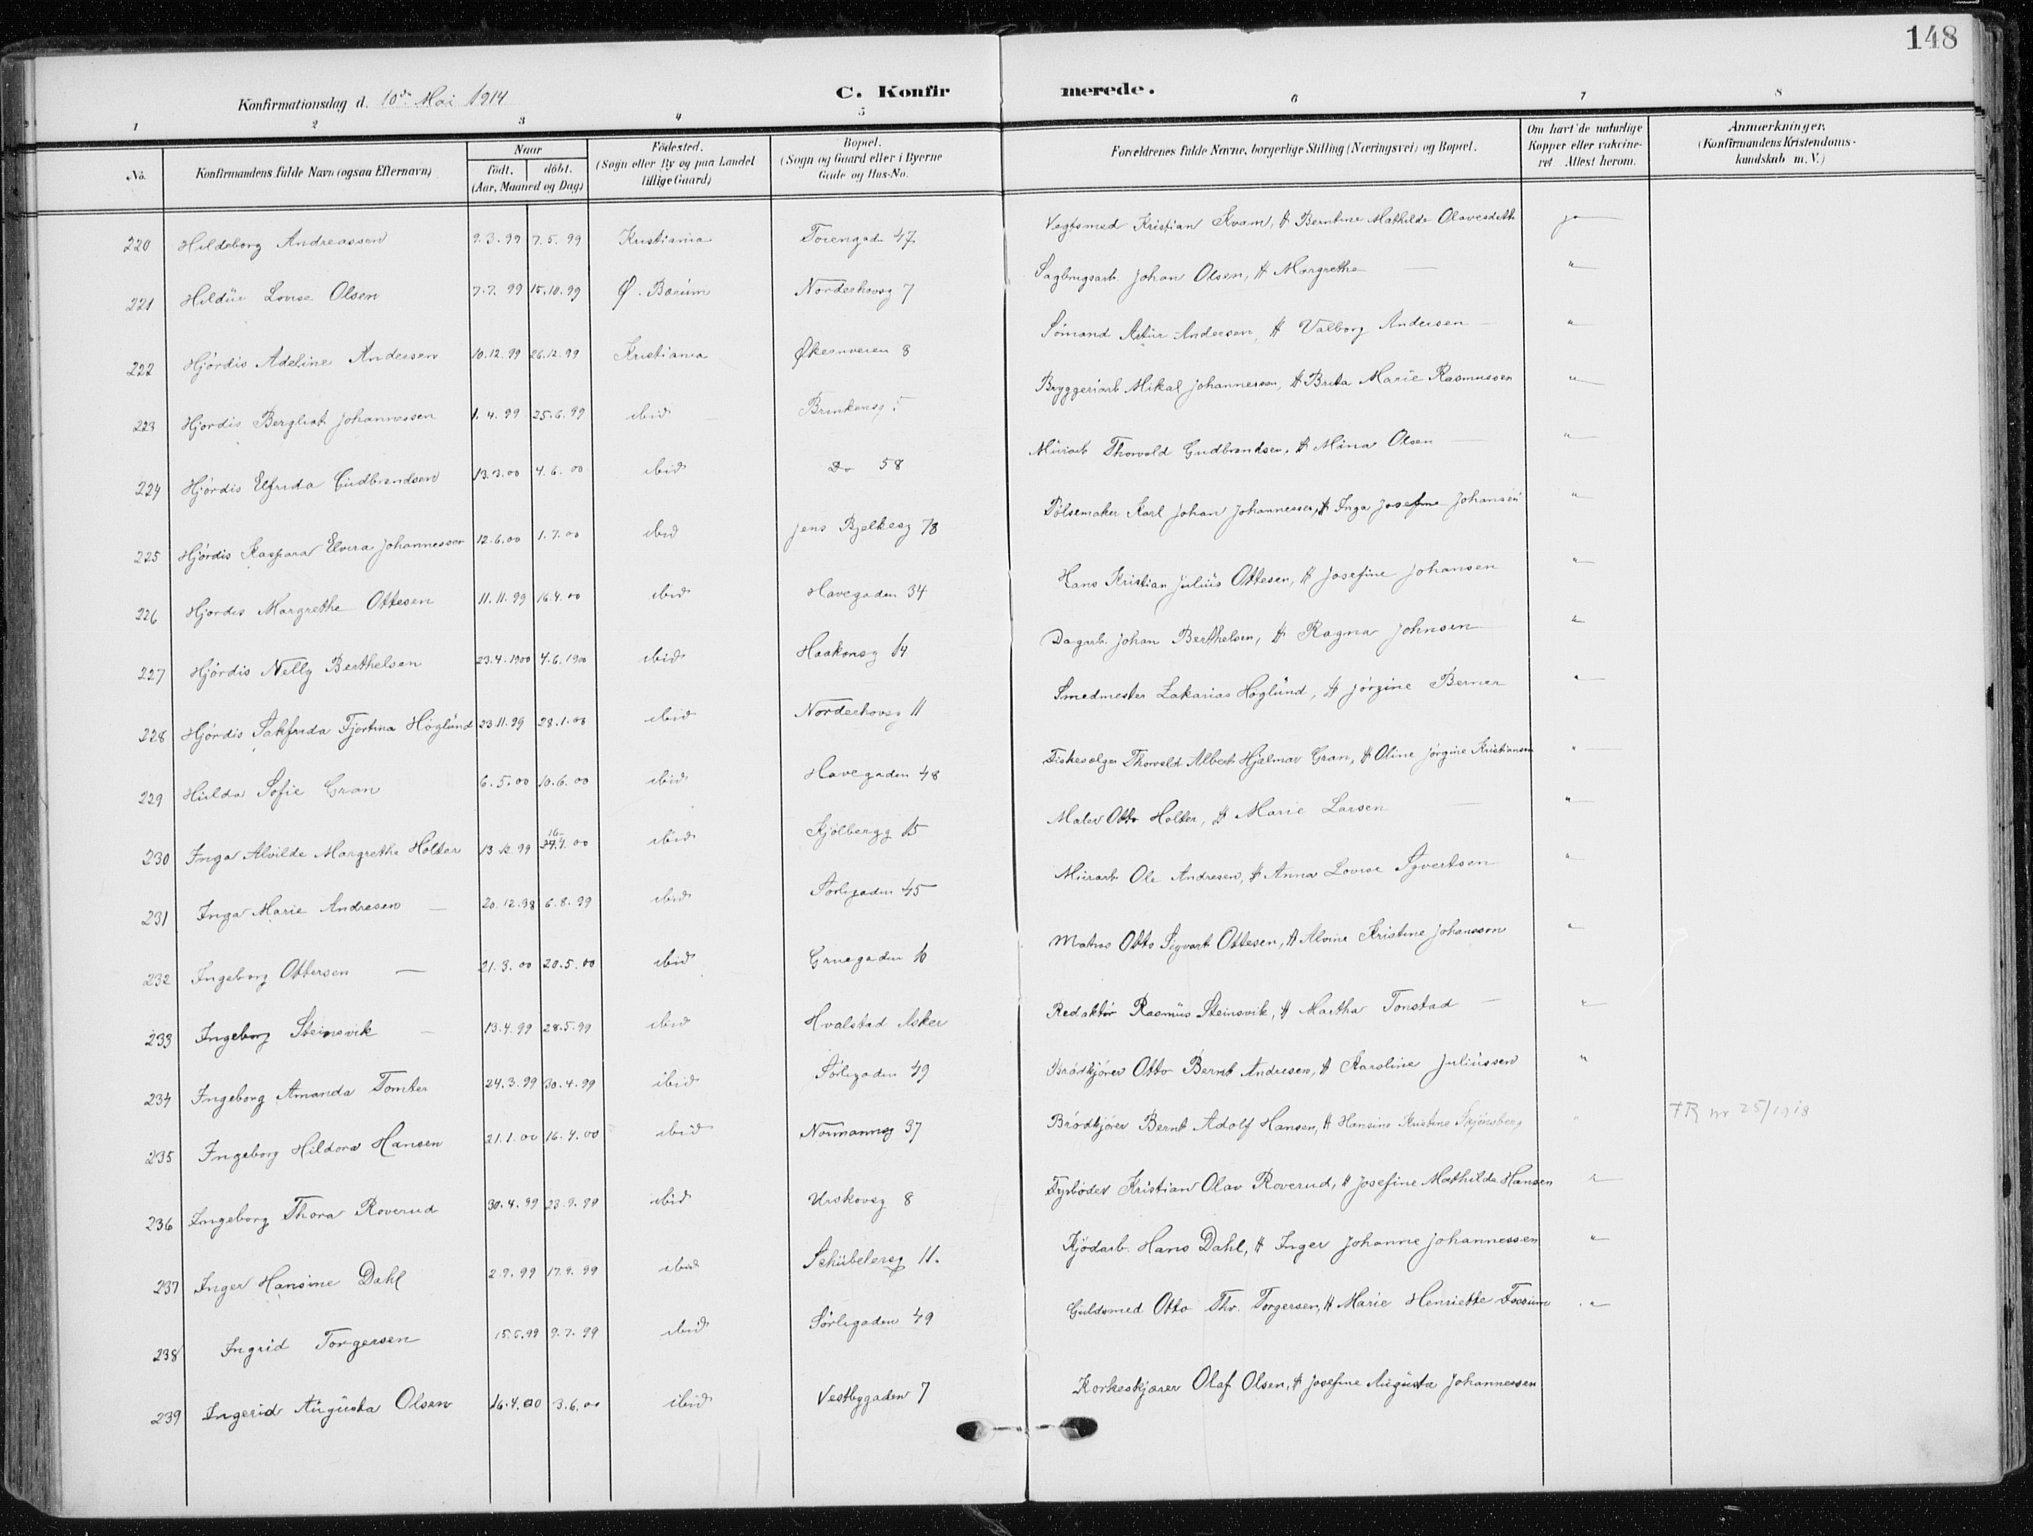 148
Konfirmationsdag d. 10de Mai 1914
C. Konfirmerede.
1 2 3 4 5 6 7 8
No. Konfirmandens fulde Navn (ogsaa Efternavn) Naar født, døbt. (Aar, Maaned og Dag) Fødested. (Sogn eller By og paa Landet tillige Gaard) Bopæl. (Sogn og Gaard eller i Byerne Gade og Hus-No. Forældrenes fulde Navne, borgerlige Stilling (Næringsvei) og Bopæl. Om havt de naturlige Kopper eller vakcineret. Attest herom. Anmærkninger. (Konfirmandens Kristendomskundskab m. V.)
220 Hildeborg Andreassen 9.3.99 7.5.99 Kristiania Toiengade 47. Vegtsmed Kristian Kvam, & Berntine Mathilde Olavesdatt. ja
221 Hildür Lovise Olsen 7.7.99 15.10.99 Ø. Bærüm Norderhovsg 7 Sagbrugsarb. Johan Olsen, & Margrethe — "
222 Hjørdis Adeline Andersen 10.12.99 26.12.99 Kristiania Økernveien 8 Sømand Artür Andersen, & Valborg Andersen — "
223 Hjørdis Bergliot Johannessen 1.4.99 25.6.99 ibid Brinkensg 5 Bryggeriarb Mikal Johannessen, & Brita Marie Rasmussen "
224 Hjørdis Elfrida Gudbrandsen 13.3.00 4.6.00 ibid Do 58 Mürarb Thorvald Gudbrandsen, & Mina Olsen — "
225 Hjørdis Kaspara Elvira Johannessen 12.6.00 1.7.00 ibid Jens Bjelkesg 78 Pølsemaker Karl Johan Johannessen, & Inga Josefine Johansen "
226 Hjørdis Margrethe Ottesen 11.11.99 16.4.00 ibid Havegaden 34 Hans Kristian Juliüs Ottesen, & Josefine Johansen "
227 Hjørdis Nelly Berthelsen 23.4.1900 4.6.1900 ibid Haakonsg 14 Dagarb. Johan Berthelsen, & Ragna Johnsen "
228 Hjørdis Sakfrida Fjortina Höglünd 23.11.99 28.1.00 ibid Norderhovsg 11 Smedmester Zakarias Höglünd, & Jørgine Berner "
229 Hülda Sofie Gran 6.5.00 10.6.00 ibid Havegaden 48 Fiskesælger Thorvald Albert Hjalmar Gran, & Oline Jørgine Kristiansen "
230 Inga Alvilde Margrethe Holter 13.12.99 16. .00 ibid Kjølbergg 15 Maler Otto Holter, & Marie Larsen — "
231 Inga Marie Andresen — 20.12.98 6.8.99 ibid Sørligaden 45 Mürarb. Ole Andresen, & Anna Lovise Syvertsen "
232 Ingeborg Ottersen — 21.3.00 20.5.00 ibid Gruegaden 10 Matros Otto Sigvart Ottesen, & Alvine Kristine Johansson "
233 Ingeborg Steinsvik — 13.4.99 28.5.99 ibid Hvalstad Asker Redaktør Rasmüs Steinsvik, & Martha Tonstad — "
234 Ingeborg Amanda Tomter 24.3.99 30.4.99 ibid Sørligaden 49 Brødkjører Otto Bernt Andresen, & Karoline Juliüssen "
235 Ingeborg Hildora Hansen 21.1.00 16.4.00 ibid Normannsg 37 Brødkjører Bernt Adolf Hansen, & Hansine Kristine Skjønsberg " FR nr 25/1918
236 Ingeborg Thora Roverud 30.4.99 23.9.99 ibid Urskovsg 8 Fyrbøder Kristian Olav Roverud, & Josefine Mathilde Hansen "
237 Inger Hansine Dahl 2.9.99 17.9.99 ibid Schübelersg 11. Kjødarb. Hans Dahl, & Inger Johanne Johannessen "
238 Ingrid Torgersen 15.5.99 9.7.99 ibid Sørligaden 49 Guldsmed Otto Thv. Torgersen, & Marie Henriette Fossum "
239 Ingerid Aügüsta Olsen 16.4.00 3.6.00 ibid Vestbygaden 7 Korkeskjærer Olaf Olsen, & Josefine Aügüsta Johannessen